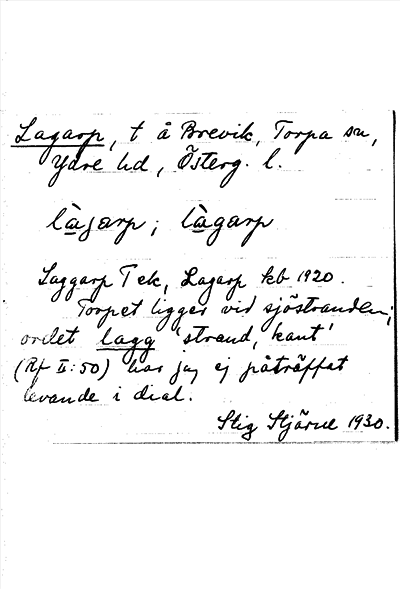 Lagarp, t å Brevik, Torpa sn,
Ydre hd, Österg. l.
làgarp; làgarp
Laggarp T ek, Lagarp kb 1920.
Torpet ligger vid sjöstranden;
ordet lagg 'strand, kant'
(Rf II:50) har jag ej påträffat
levande i dial.
Stig Stjärne 1930.